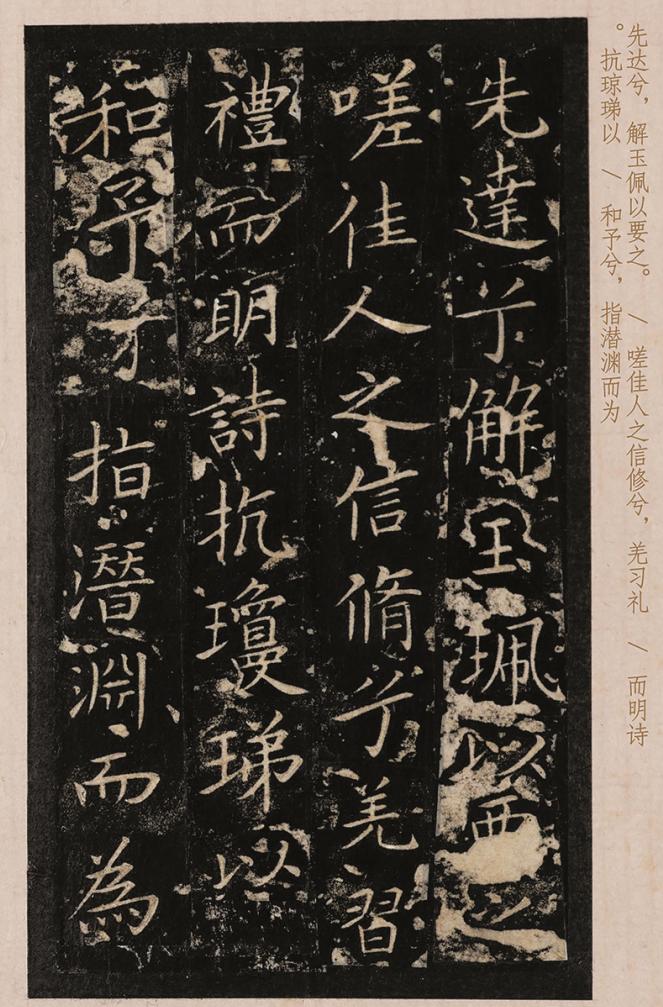 先达兮，解玉佩以要之。 / 嗟佳人之信修兮，羌习礼 / 而明诗
。抗琼珶以 / 和予兮，指潜渊而为
先達兮解玉珮以要之
嗟佳人之信脩兮羌習
禮而明詩抗瓊珶以
和予兮指潛淵而為